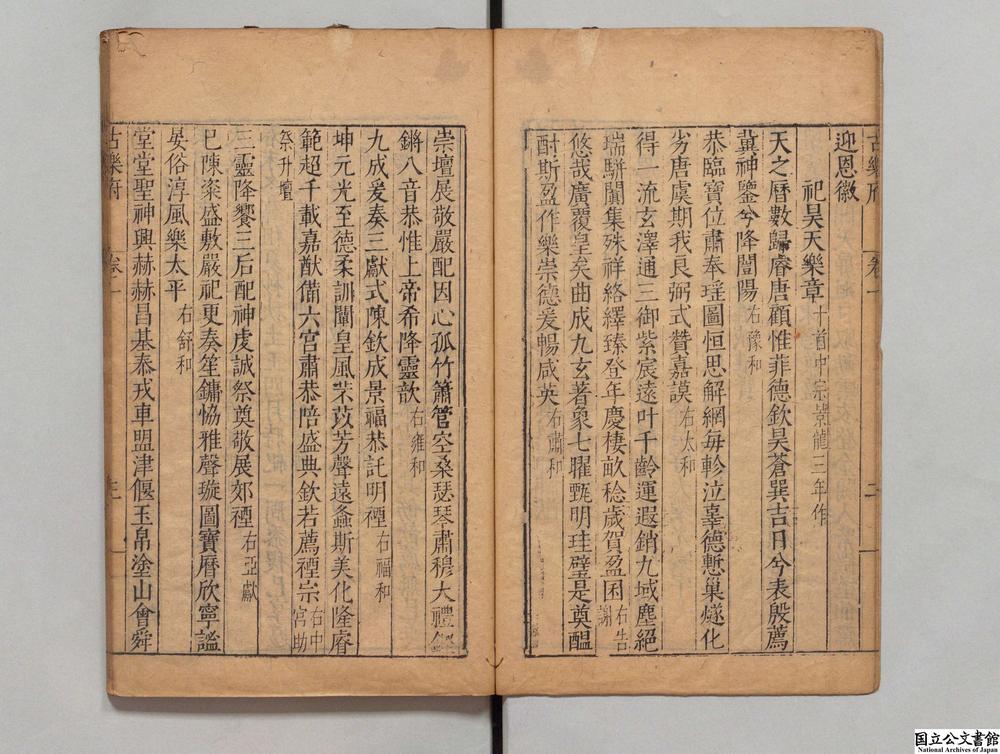 迎恩徽
祀昊天樂章十首中宗景龍三年作
天之曆數歸睿唐顧惟菲德欽昊蒼巽吉日兮表殷薦
冀神鑒兮降闓陽右豫和
恭臨寶位肅奉瑤圖恒思解網每軫泣辜德慙巢燧化
劣唐虞期我良弼式贊嘉謨右太和
得一流玄澤通三御紫宸遠叶千齡運遐銷九域塵絕
瑞駢闐集殊祥絡繹臻登年慶棲畝稔歲賀盈囷右告謝
悠哉廣覆皇矣曲成九玄著象七曜甄明珪璧是奠醞
酎斯盈作樂崇德爰暢咸英右肅和
古樂府 卷一 二
崇壇展敬嚴配因心孤竹簫管空桑瑟琴肅穆大禮
鏘八音恭惟上帝希降靈歆右雍和
九成爰奏三獻式陳欽成景福恭託明禋右福和
坤元光至德柔訓闡皇風芣苡芳聲遠螽斯美化隆睿
範超千載嘉猷備六宮肅恭陪盛典欽若薦禋宗右中宮助
祭升壇
三靈降饗三后配神虔誠祭奠敬展郊禋右亞獻
已陳粢盛敷嚴祀更奏笙鏞恊雅聲璇圖寶曆欣寧謐
晏俗淳風樂太平右舒和
堂堂聖神興赫赫昌基泰戎車盟津偃玉帛塗山會舜
古樂府 卷一
国立公文書館
National Archives of Japan